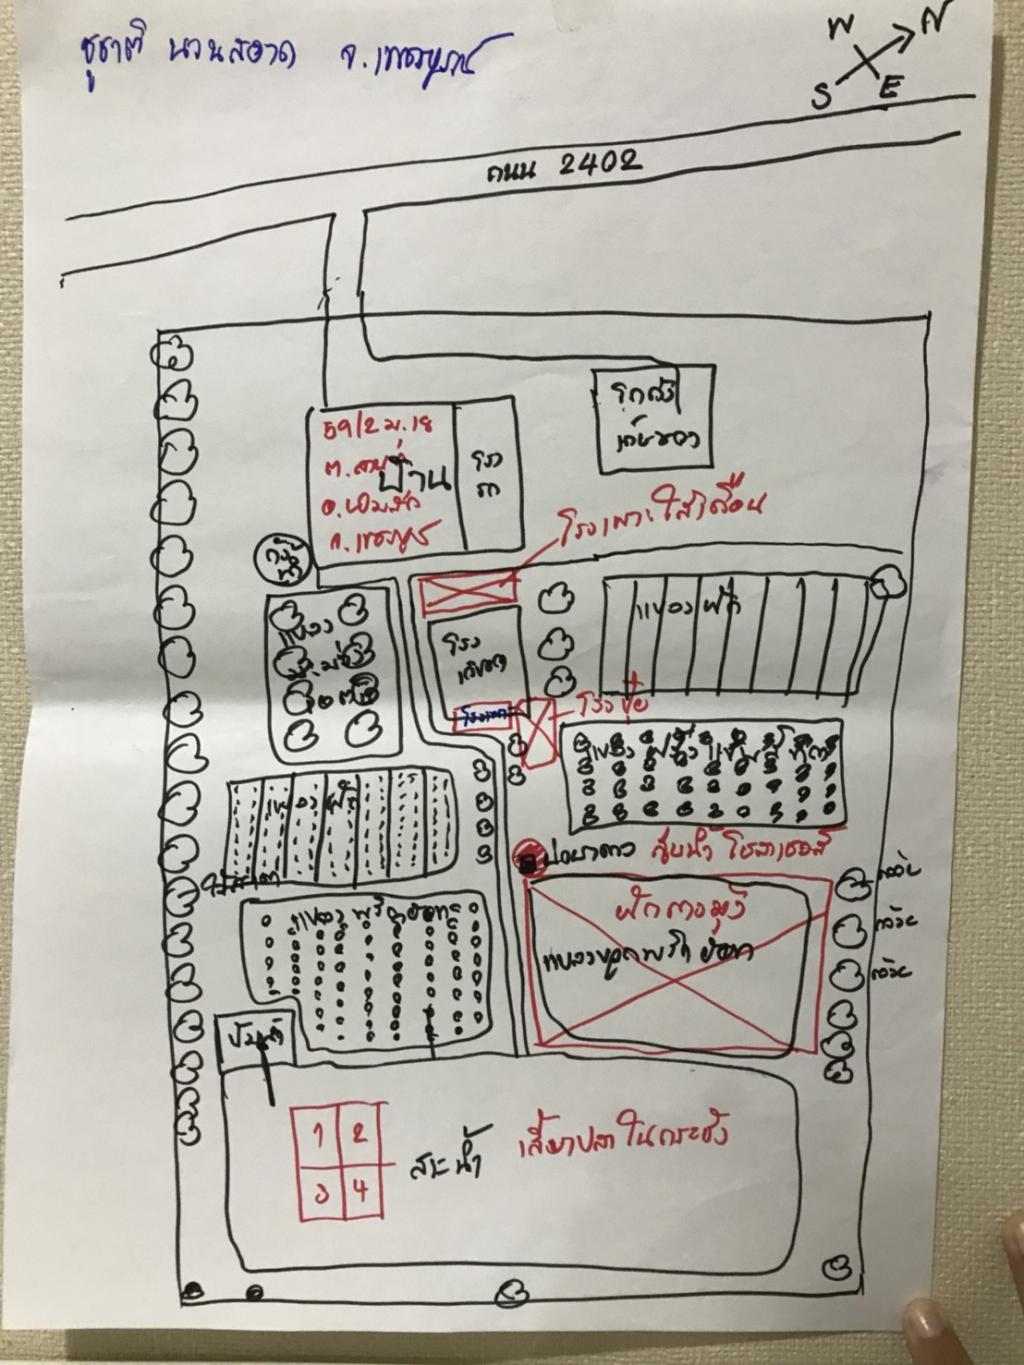 ชูชาติ นวนสอาด จ.เพชรบูรณ์
W N
S E
ถนน 2402
59/2 ม.18
ต.
บ้าน
จ.เพชรบูรณ์
โรง
รถ
เก็บของ
โรงเพาะไส้เดือน
แปลงผัก
แปลง
โรง
โรงเพาะ
โรงปุ๋ย
แปลงฝรั่ง
แปลงผัก
บ่อบาดาล สูบน้ำโซลาเซลล์
กล้วย
กล้วย
กล้วย
แปลงพริก
ผักกางมุ้ง
แปลงปลูกพริก
1 2
3 4
สระน้ำ
เลี้ยงปลาในกระชัง